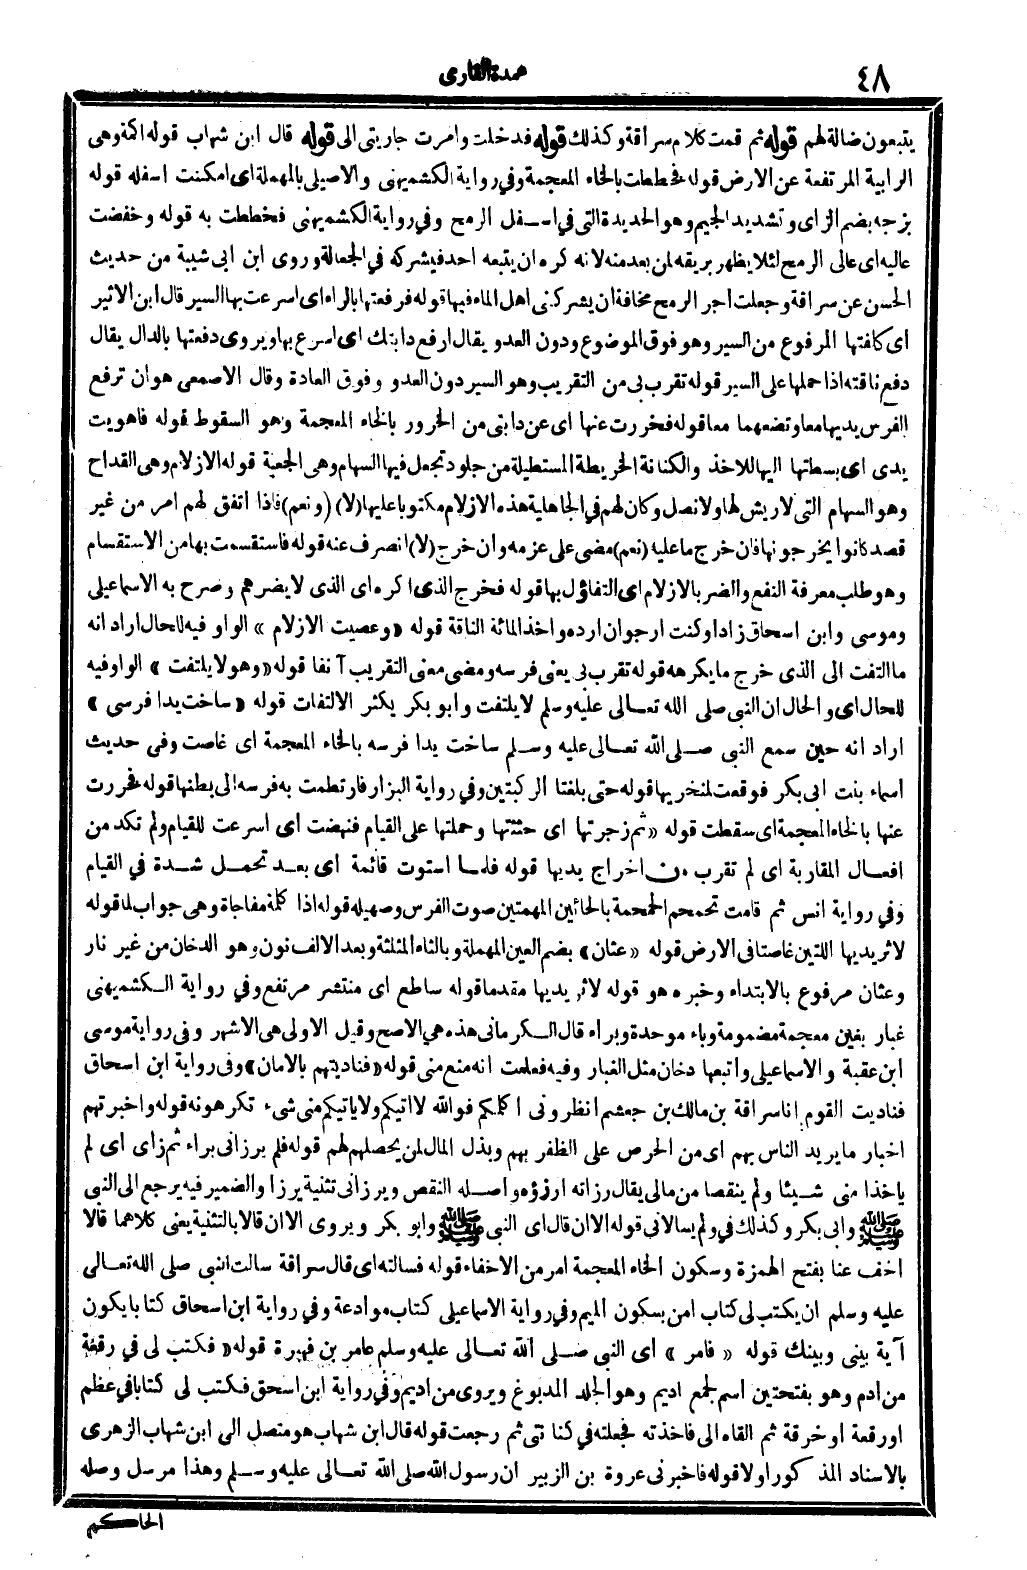 ٤٨
عمدة القارى
يتبعون ضالة لهم قوله ثم قمت كلام سراقة وكذلك قوله فدخلت وامرت جاريتى الى قوله قال ابن شهاب قوله اكمة وهى
الرابية المرتفعة عن الارض قوله فخططت بالخاء المعجمة وفى رواية الكشميهنى والاصيلى بالمهملة اى امكنت اسفله قوله
بزجه بضم الزاى وتشديد الجيم وهو الحديدة التى فى اسفل الرمح وفى رواية الكشميهنى فخططت به قوله وخفضت
عاليه اى عالى الرمح لئلا يظهر بريقه لمن بعد منه لانه كره ان يتبعه احد فيشركه فى الجعالة وروى ابن ابى شيبة من حديث
الحسن عن سراقة وجعلت اجر الرمح مخافة ان يشركنى اهل الماء فيها قوله فرفعتها بالراء اى اسرعت بها السير قال ابن الاثير
اى كافتها المرفوع من السير وهو فوق الموضوع ودون العدو يقال ارفع دابتك اى اسرع بها ويروى دفعتها بالدال يقال
دفع ناقته اذا حملها على السير قوله تقرب بى من التقريب وهو السير دون العدو وفوق العادة وقال الاصمعى هو ان ترفع
الفرس يديها معا وتضعهما معا قوله فخررت عنها اى عن دابتى من الخرور بالخاء المعجمة وهو السقوط قوله فاهويت
يدى اى بسطتها اليها للاخذ والكنانة الخريطة المستطيلة من جلود تجعل فيها السهام وهى الجعبة قوله الازلام وهى القداح
وهو السهام التى لا ريش لها ولا نصل وكان لهم فى الجاهلية هذه الازلام مكتوبا عليها (لا) (ونعم) فاذا اتفق لهم امر من غير
قصد كانوا يخرجونها فان خرج ما عليه (نعم) مضى على عزمه وان خرج (لا) انصرف عنه قوله فاستقسمت بها من الاستقسام
وهو طلب معرفة النفع والضر بالازلام اى التفاؤل بها قوله فخرج الذى اكره اى الذى لا يضرهم وصرح به الاسماعيلى
وموسى وابن اسحاق زاد او كنت ارجو ان ارده واخذ المائة الناقة قوله «وعصيت الازلام» الواو فيه للحال اراد انه
ما التفت الى الذى خرج مما يكرهه قوله تقرب بى يعنى فرسه ومضى معنى التقريب آنفا قوله «وهو لا يلتفت» الواو فيه
للحال اى والحال ان النبى صلى الله تعالى عليه وسلم لا يلتفت وابو بكر يكثر الالتفات قوله «ساخت يدا فرسى»
اراد انه حين سمع النبى صلى الله تعالى عليه وسلم ساخت يدا فرسه بالخاء المعجمة اى غاصت وفى حديث
اسماء بنت ابى بكر فوقعت لمنخريها قوله حتى بلغتا الركبتين وفى رواية البزار فارتطمت به فرسه الى بطنها قوله فخررت
عنها بالخاء المعجمة اى سقطت قوله «ثم زجرتها اى حثثتها وحملتها على القيام فنهضت اى اسرعت للقيام ولم تكد من
افعال المقاربة اى لم تقرب من اخراج يديها قوله فلما استوت قائمة اى بعد تحمل شدة فى القيام
وفى رواية انس ثم قامت تحمحم الحمحمة بالحائين المهمتين صوت الفرس وصهيله قوله اذا كلمة مفاجاة وهى جواب لما قوله
لاثر يديها اللتين غاصتا فى الارض قوله «عثان» بضم العين المهملة وبالثاء المثلثة وبعد الالف نون وهو الدخان من غير نار
وعثان مرفوع بالابتداء وخبره هو قوله لاثر يديها مقدما قوله ساطع اى منتشر مرتفع وفى رواية الكشميهنى
غبار بغين معجمة مضمومة وباء موحدة وبراء قال الكرمانى هذه هى الاصح وقيل الاولى هى الاشهر وفى رواية موسى
ابن عقبة والاسماعيلى واتبعها دخان مثل الغبار وفيه فعلمت انه منع منى قوله «فناديتهم بالامان» وفى رواية ابن اسحاق
فناديت القوم انا سراقة بن مالك بن جعشم انظرونى اكلمكم فوالله لا اتيكم ولا ياتيكم منى شىء تكرهونه قوله واخبرتهم
اخبار ما يريد الناس بهم اى من الحرص على الظفر بهم وبذل المال لمن يحصلهم لهم قوله فلم يرزانى براء ثم زاى اى لم
ياخذا منى شيئا ولم ينقصا من مالى يقال رزاته ارزؤه واصله النقص ويرزانى تثنية يرزا والضمير فيه يرجع الى النبى
ﷺ وابى بكر وكذلك فى ولم يسالانى قوله الا ان قال اى النبى ﷺ وابو بكر ويروى الا ان قالا بالتثنية يعنى كلاهما قالا
اخف عنا بفتح الهمزة وسكون الخاء المعجمة امر من الاخفاء قوله فسالته اى قال سراقة سالت النبى صلى الله تعالى
عليه وسلم ان يكتب لى كتاب امن بسكون الميم وفى رواية الاسماعيلى كتاب موادعة وفى رواية ابن اسحاق كتابا يكون
آية بينى وبينك قوله «فامر» اى النبى صلى الله تعالى عليه وسلم عامر بن فهيرة قوله «فكتب لى فى رقعة
من ادم وهو بفتحتين اسم لجمع اديم وهو الجلد المدبوغ ويروى من اديم وفى رواية ابن اسحق فكتب لى كتابا فى عظم
اورقعة او خرقة ثم القاه الى فاخذته فجعلته فى كنانتى ثم رجعت قوله قال ابن شهاب هو متصل الى ابن شهاب الزهرى
بالاسناد المذكور اولا قوله فاخبرنى عروة بن الزبير ان رسول الله صلى الله تعالى عليه وسلم وهذا مرسل وصله
الحاكم